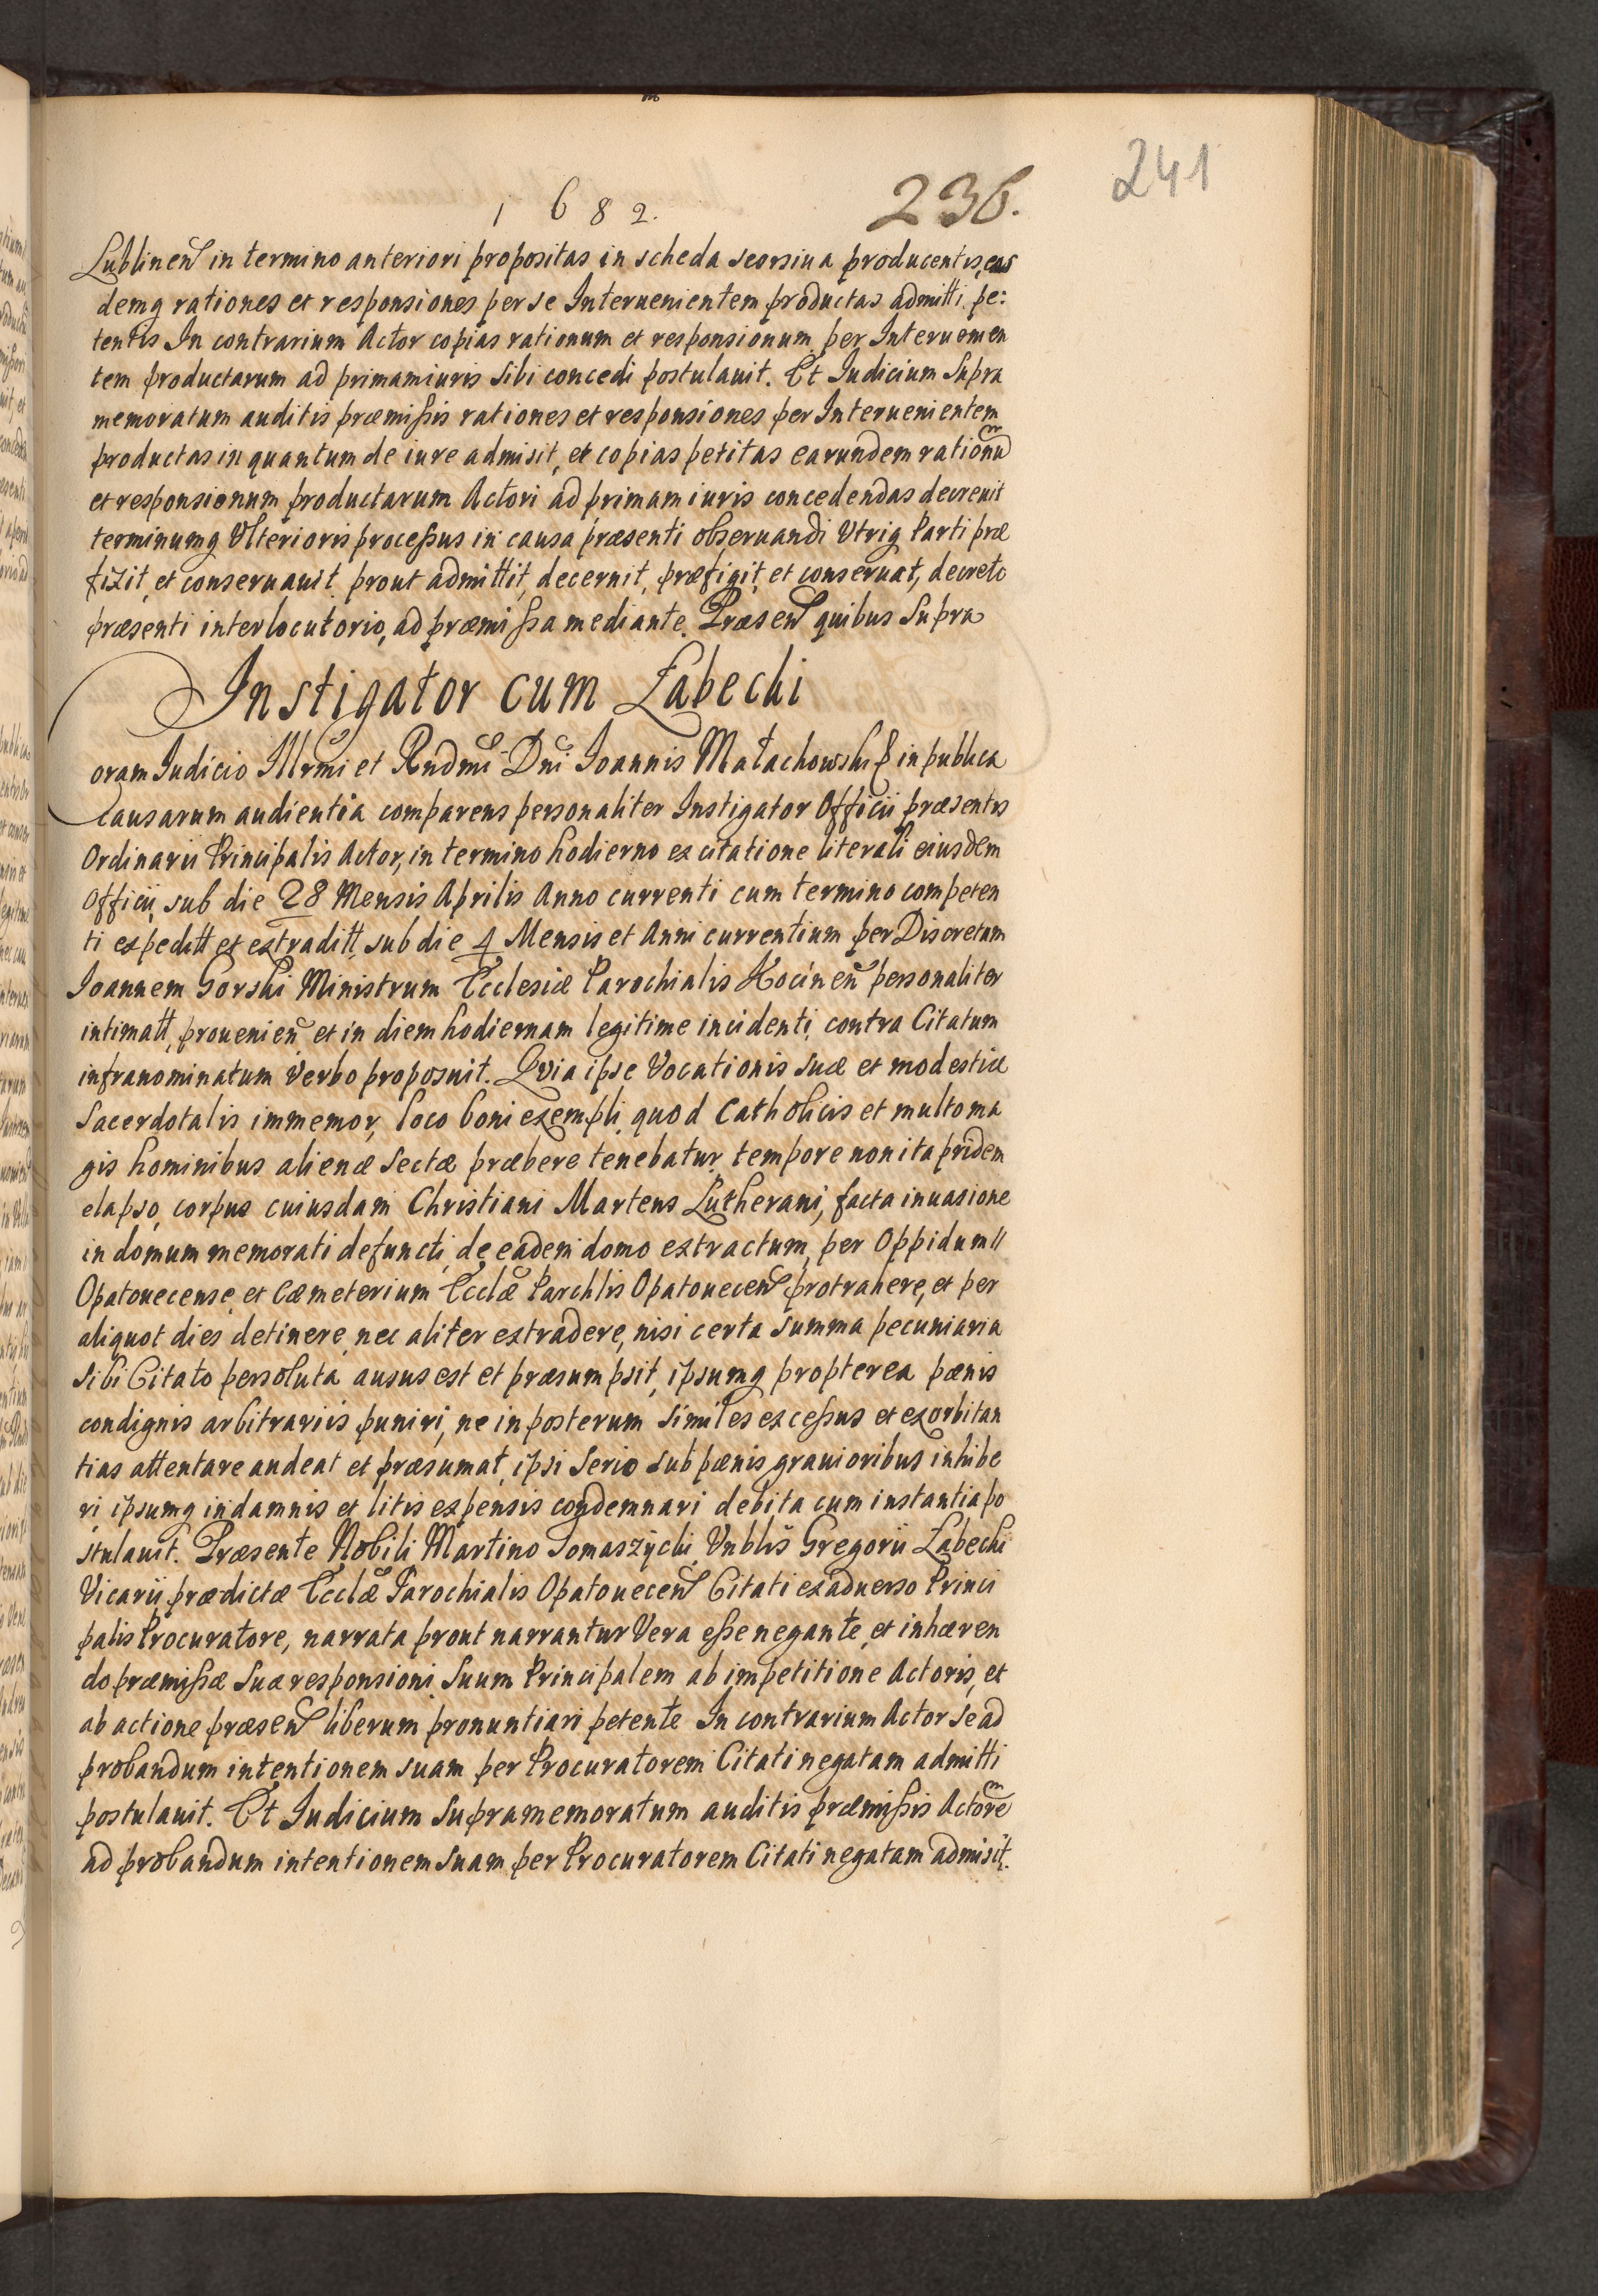 241
1682. 236.
Lublineñ in termino anteriori propositas in scheda seorsiua producentis, eas
demq rationes et responsiones per se Interuenientem productas admitti pe:
tentis In contrarium Actor copias rationum et responsionum per Interuenien
tem productarum ad primam iuris sibi concedi postulauit. Et Iudicium Supra
memoratum auditis præmißis rationes et responsiones per Interuenientem
productas in quantum de iure admisit, et copias petitas earundem rationũ
et responsionum productarum Actori ad primam iuris concedendas decreuit
terminumq Vlterioris proceßus in causa præsenti obseruandi Vtriq Parti præ
fixit, et conseruauit prout admittit, decernit, præfigit et conseruat, decreto
præsenti interlocutorio, ad præmißa mediante. Præseñ quibus Supra
Instigator cum Łabecki
Coram Iudicio Illrmi et Rndmi Dni Ioannis Małachowski p in publica
causarum audientia comparens personaliter Instigator Officii præsentis
Ordinarii Principalis Actor, in termino hodierno ex citatione literali eiusdem
Officii, sub die 28 Mensis Aprilis Anno currenti cum termino competen
ti expeditt et extraditt, sub die 4 Mensis et Anni currentium per Discretum
Ioannem Gorski Ministrum Ecclesiæ Parochialis Kocineñ personaliter
intimatt, prouenieñ et in diem hodiernam legitime incidenti, contra Citatum
infranominatum Verbo proposuit. Qvia ipse Vocationis suæ et modestiæ
Sacerdotalis immemor, loco boni exempli, quod Catholicis et multo ma
gis hominibus alienæ Sectæ præbere tenebatur, tempore non ita pridem
elapso, corpus cuiusdam Christiani Martens Lutherani, facta inuasione
in domum memorati defuncti, de eadem domo extractum, per Oppidum
Opatouecense, et Cæmeterium Ecclæ Parchlis Opatoueceñ protrahere, et per
aliquot dies detinere, nec aliter extradere, nisi certa summa pecuniaria
sibi Citato persoluta ausus est et præsumpsit, ipsumq propterea pænis
condignis arbitrariis puniri, ne in posterum similes exceßus et exorbitan
tias attentare audeat et præsumat, ipsi serio sub pænis grauioribus inhibe
ri ipsumq in damnis et litis expensis condemnari debita cum instantia po
stulauit. Præsente Nobili Martino Tomaszycki Vnblis Gregorii Łabecki
Vicarii prædictæ Ecclæ Parochialis Opatoueceñ Citati ex aduerso Princi
palis Procuratore, narrata prout narrantur Vera eße negante, et inhæren
do præmißæ suæ responsioni suum Principalem ab impetitione Actoris, et
ab actione præseñ liberum pronuntiari petente In contrarium Actor se ad
probandum intentionem suam per Procuratorem Citati negatam admitti
postulauit. Et Iudicium supramemoratum auditis præmißis Actorẽ
ad probandum intentionem suam per Procuratorem Citati negatam admisit.